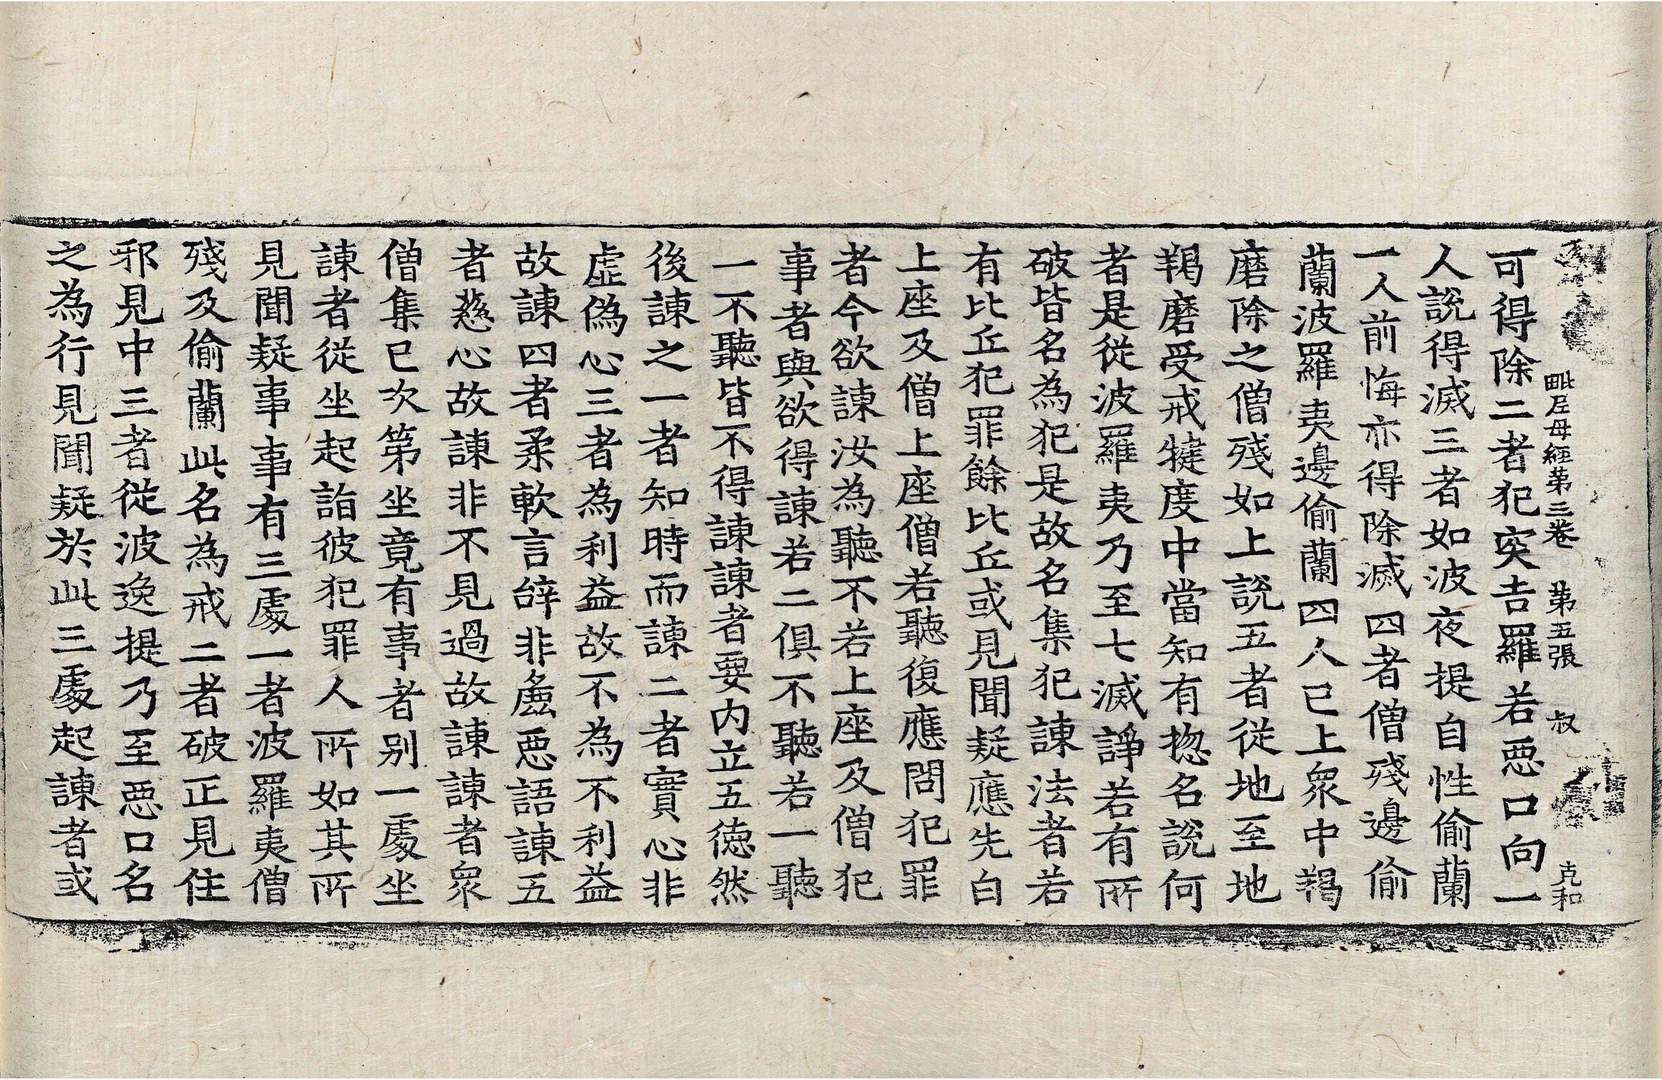 毗尼母經第三卷 第五張 叔 克和
可得除二者犯突吉羅若惡口向一
人說得滅三者如波夜提自性偷蘭
一人前悔亦得除滅四者僧殘邊偷
蘭波羅夷邊偷蘭四人已上衆中羯
磨除之僧殘如上說五者從地至地
羯磨受戒犍度中當知有揔名說何
者是從波羅夷乃至七滅諍若有所
破皆名為犯是故名集犯諫法者若
有比丘犯罪餘比丘或見聞疑應先白
上座及僧上座僧若聽復應問犯罪
者今欲諫汝為聽不若上座及僧犯
事者與欲得諫若二俱不聽若一聽
一不聽皆不得諫諫者要內立五德然
後諫之一者知時而諫二者實心非
虛僞心三者為利益故不為不利益
故諫四者柔軟言辝非麁惡語諫五
者慈心故諫非不見過故諫諫者衆
僧集已次第坐竟有事者別一處坐
諫者從坐起詣彼犯罪人所如其所
見聞疑事事有三處一者波羅夷僧
殘及偷蘭此名為戒二者破正見住
邪見中三者從波逸提乃至惡口名
之為行見聞疑於此三處起諫者或